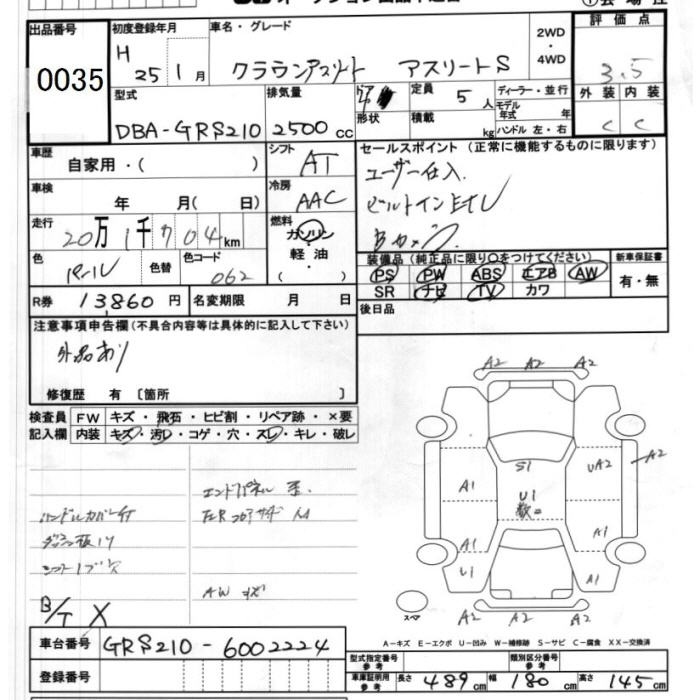 出品番号
0035
初度登録年月
H 25 1 月
車名・グレード
クラウンアスリート アスリートS
2WD
・
4WD
評価点
3.5
外装 内装
C C
型式
DBA-GRS210
排気量
2500 cc
ドア
形状
定員 5 人
積載 kg
ディーラー・並行
モデル年式 年
ハンドル 左・右
車歴
自家用・( )
シフト
AT
車検
年 月( 日)
冷房
AAC
走行
20万 1千 704 km
燃料
ガソリン
・
軽油
・
( )
色
パール
色替
色コード
062
R券 13,860 円
名変期限 月 日
セールスポイント(正常に機能するものに限ります)
ユーザー仕入
ビルトインETC
Bカメラ
装備品(純正品に限り○をつけてください)
PS PW ABS エアB AW
SR ナビ TV カワ
新車保証書
有・無
後日品
注意事項申告欄(不具合内容等は具体的に記入して下さい)
外品あり
修復歴 有〔箇所 〕
検査員
記入欄
FW キズ・飛石・ヒビ割・リペア跡・×要
内装 キズ・汚れ・コゲ・穴・スレ・キレ・破レ
エンドパネル
ハンドルカバー付
AW キズ
B/T X
A2 A2 A2
S1
UA2
A2
A1
U1
A1
A1
U1
A1
A2 A2 A2
スペア
A-キズ E-エクボ U-凹み W-補修跡 S-サビ C-腐食 XX-交換済
車台番号 GRS210-6002224
登録番号
型式指定番号
参考
類別区分番号
参考
車庫証明用
参考
長さ 489 cm 幅 180 cm 高さ 145 cm